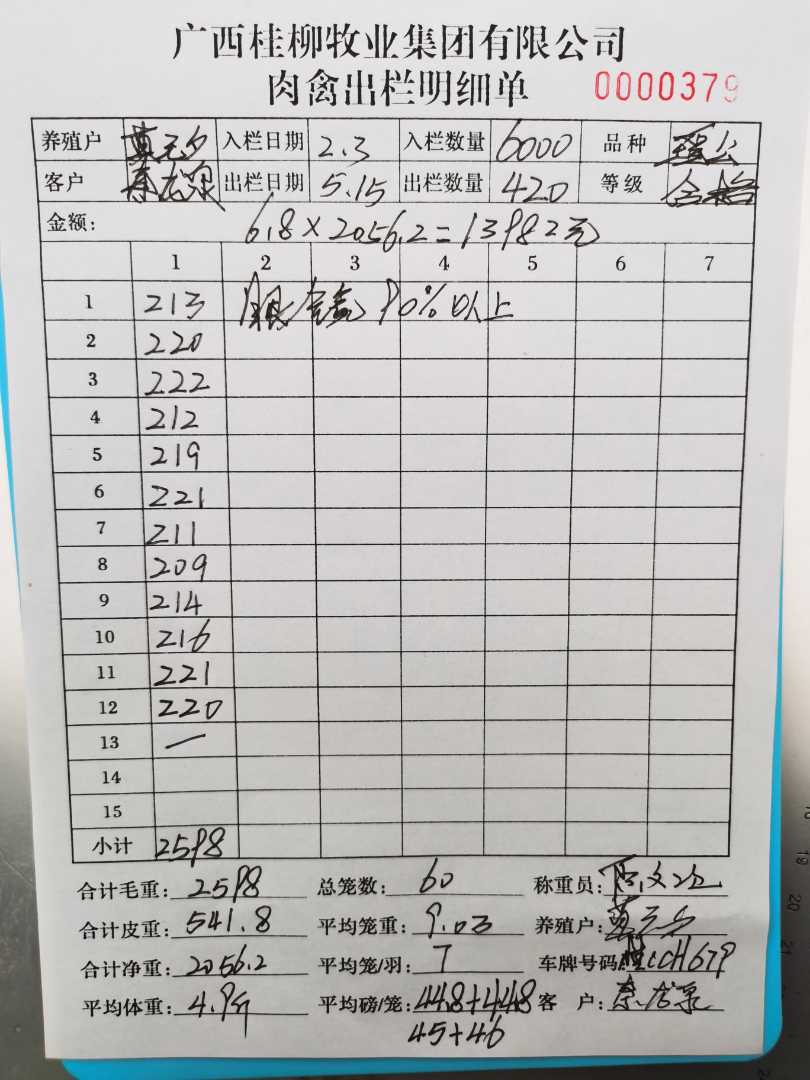 广西桂柳牧业集团有限公司
肉禽出栏明细单 0000379
养殖户 入栏日期 2.3 入栏数量 6000 品种
客户 秦龙泉 出栏日期 5.15 出栏数量 420 等级 合格
金额: 6.8×2056.2=13982元
1 2 3 4 5 6 7
1 213 90%以上
2 220
3 222
4 212
5 219
6 221
7 211
8 209
9 214
10 216
11 221
12 220
13 一
14
15
小计 2598
合计毛重: 2598 总笼数: 60 称重员:
合计皮重: 541.8 平均笼重: 9.03 养殖户:
合计净重: 2056.2 平均笼/羽: 7 车牌号码: CH679
平均体重: 4.9斤 平均磅/笼: 44.8+44.8 客 户: 秦龙泉
45+46